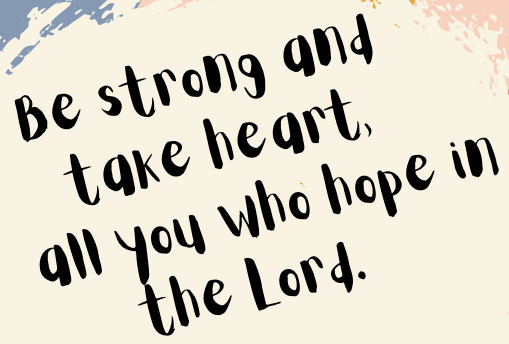 Be strong and
take heart,
all you who hope in
the Lord.